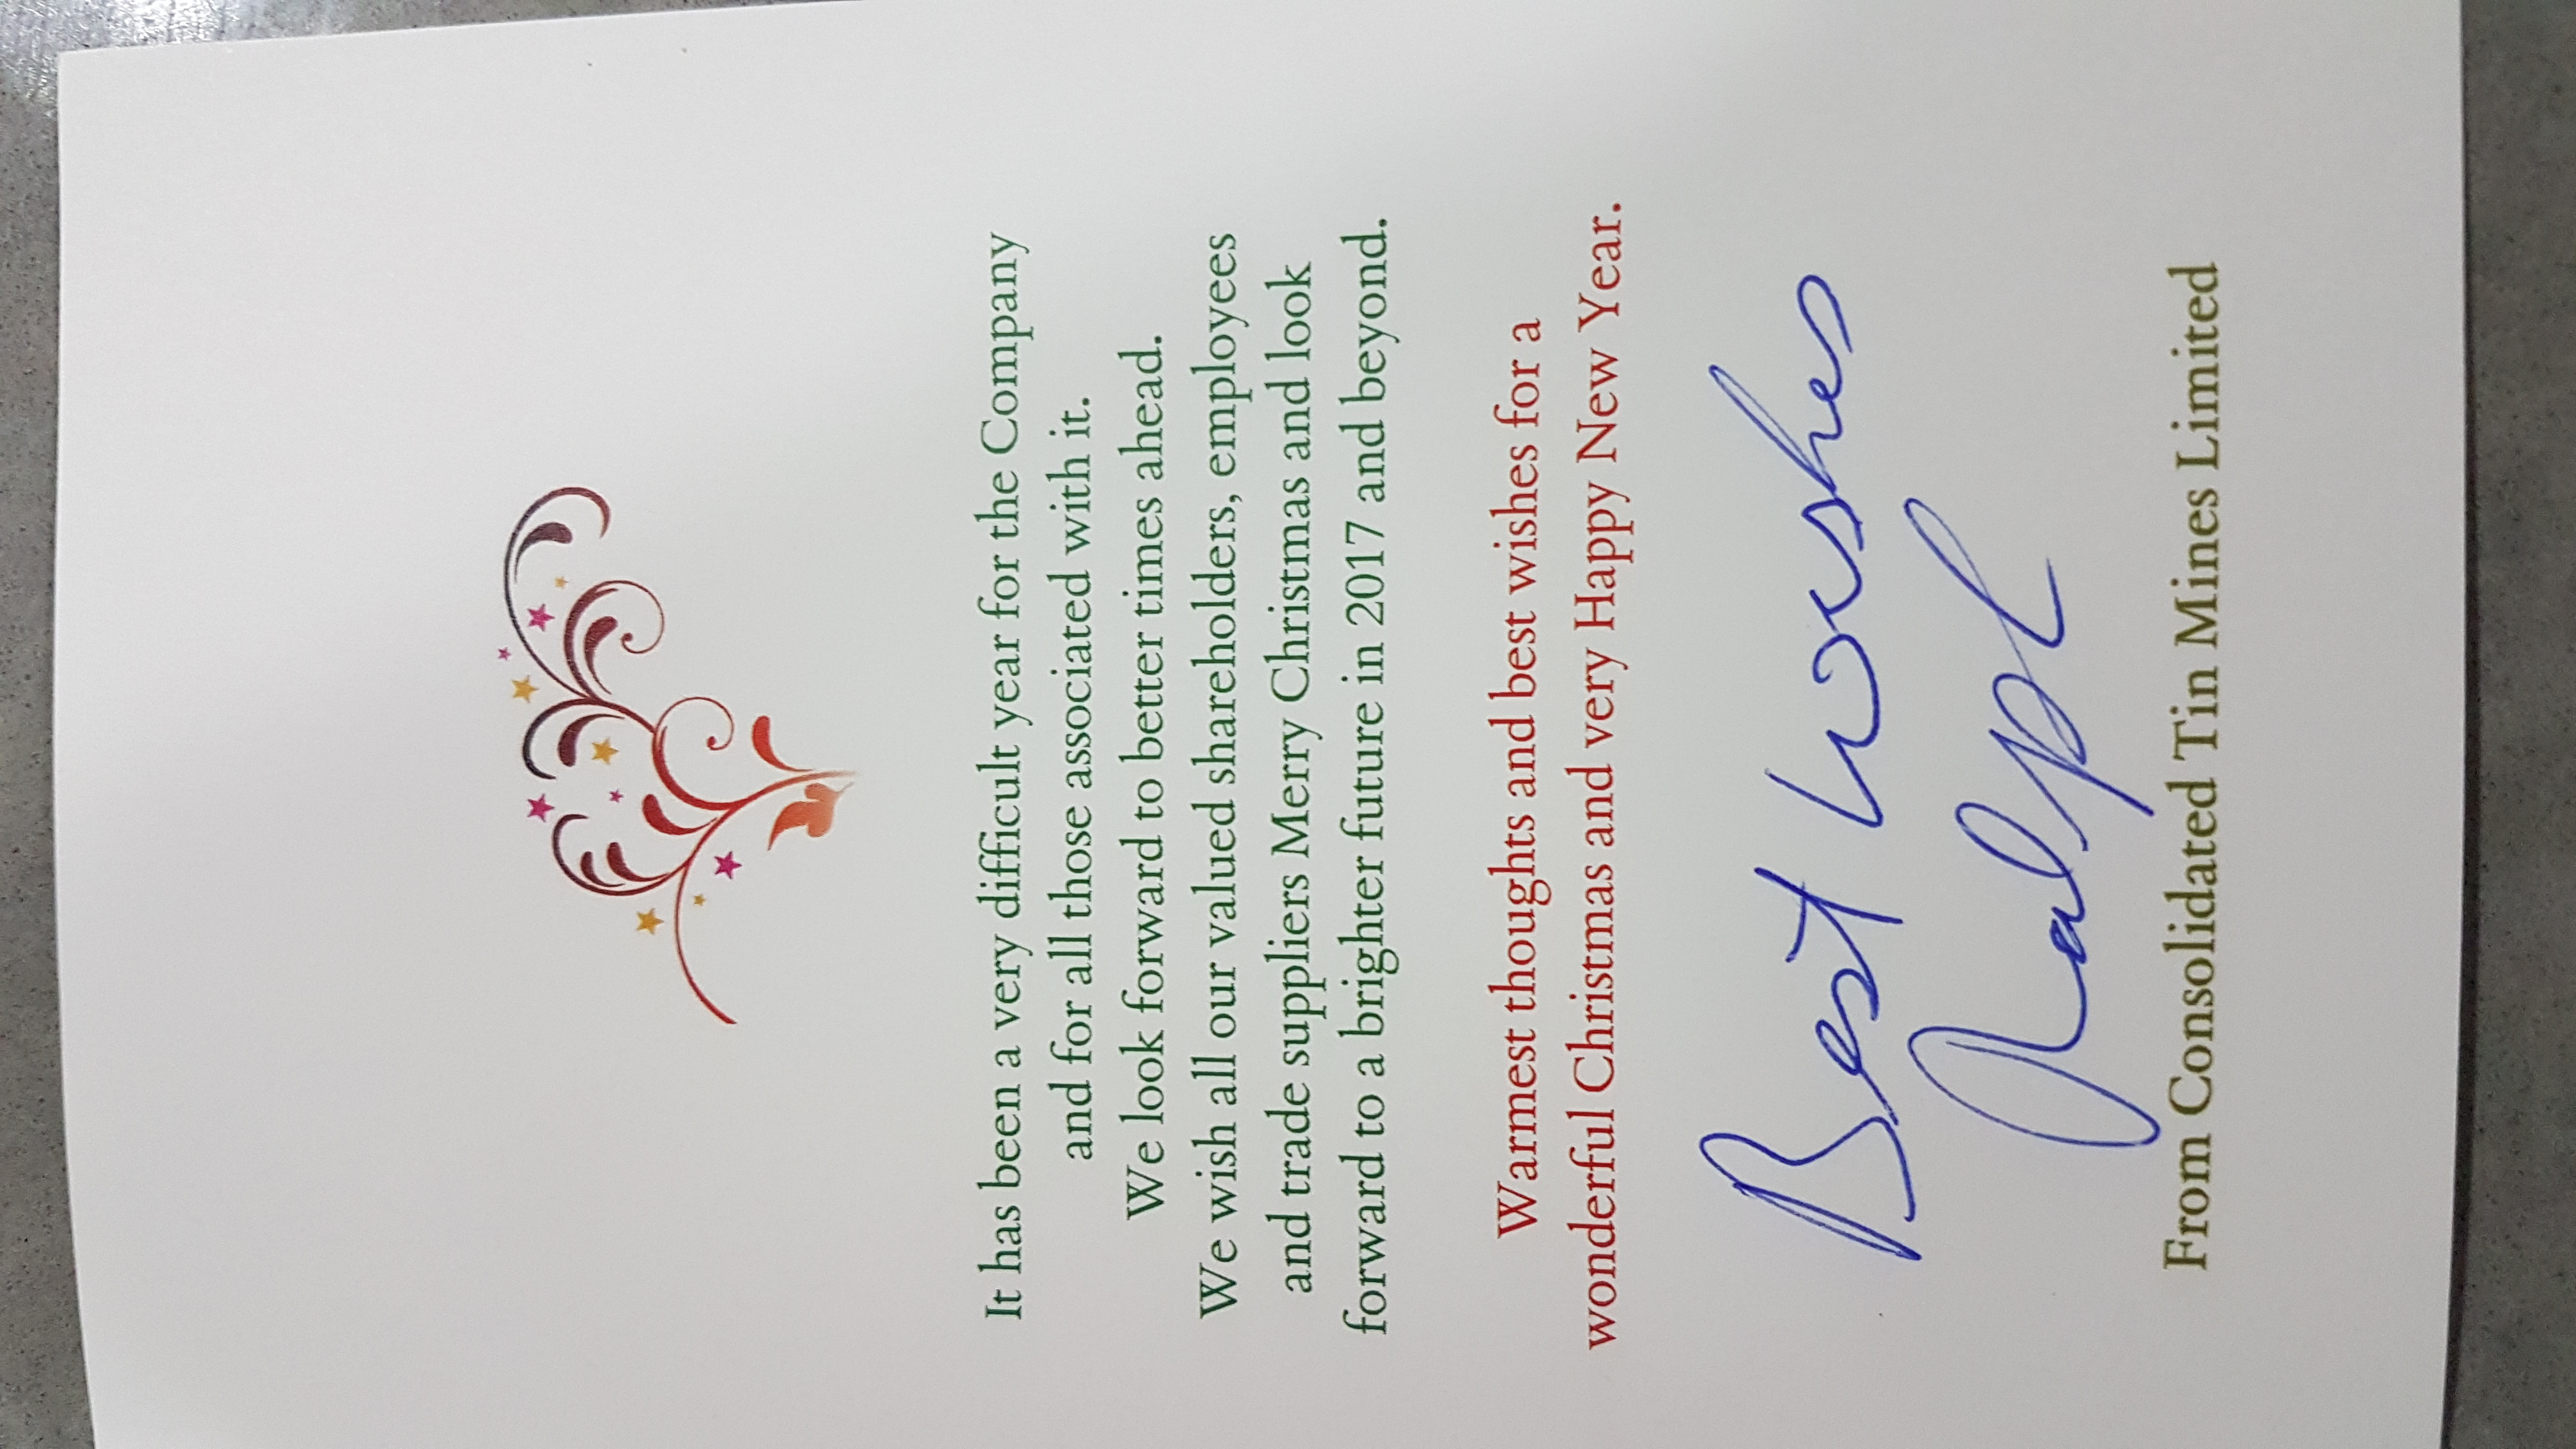 It has been a very difficult year for the Company
and for all those associated with it.
We look forward to better times ahead.
We wish all our valued shareholders, employees
and trade suppliers Merry Christmas and look
forward to a brighter future in 2017 and beyond.
Warmest thoughts and best wishes for a
wonderful Christmas and very Happy New Year.
Best wishes
Ralph
From Consolidated Tin Mines Limited